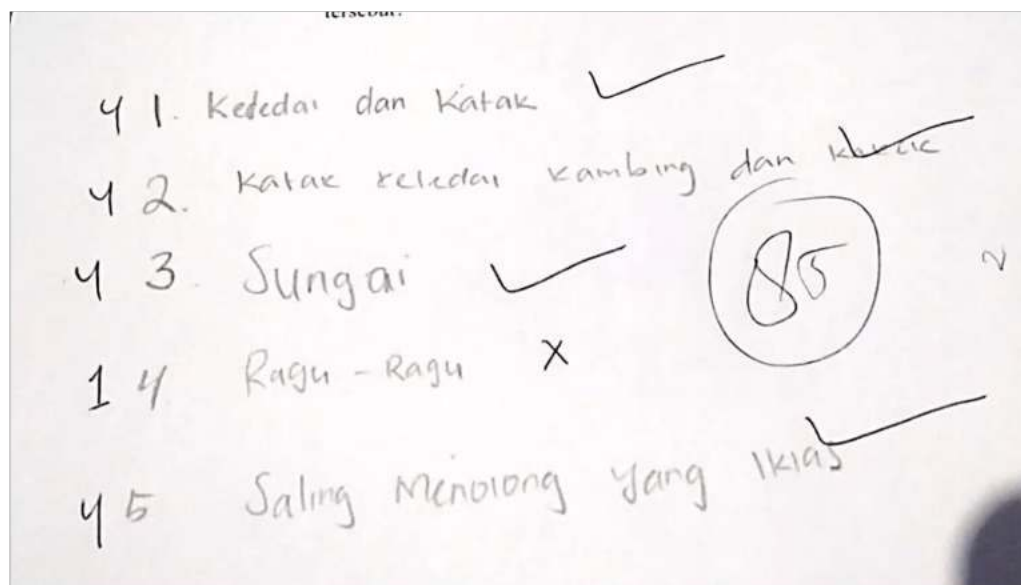 tersebut.
4 1. Keledai dan Katak
4 2. Katak keledai kambing dan
4 3. Sungai
85
1 4 Ragu - Ragu X
4 5 Saling Menolong yang Iklas